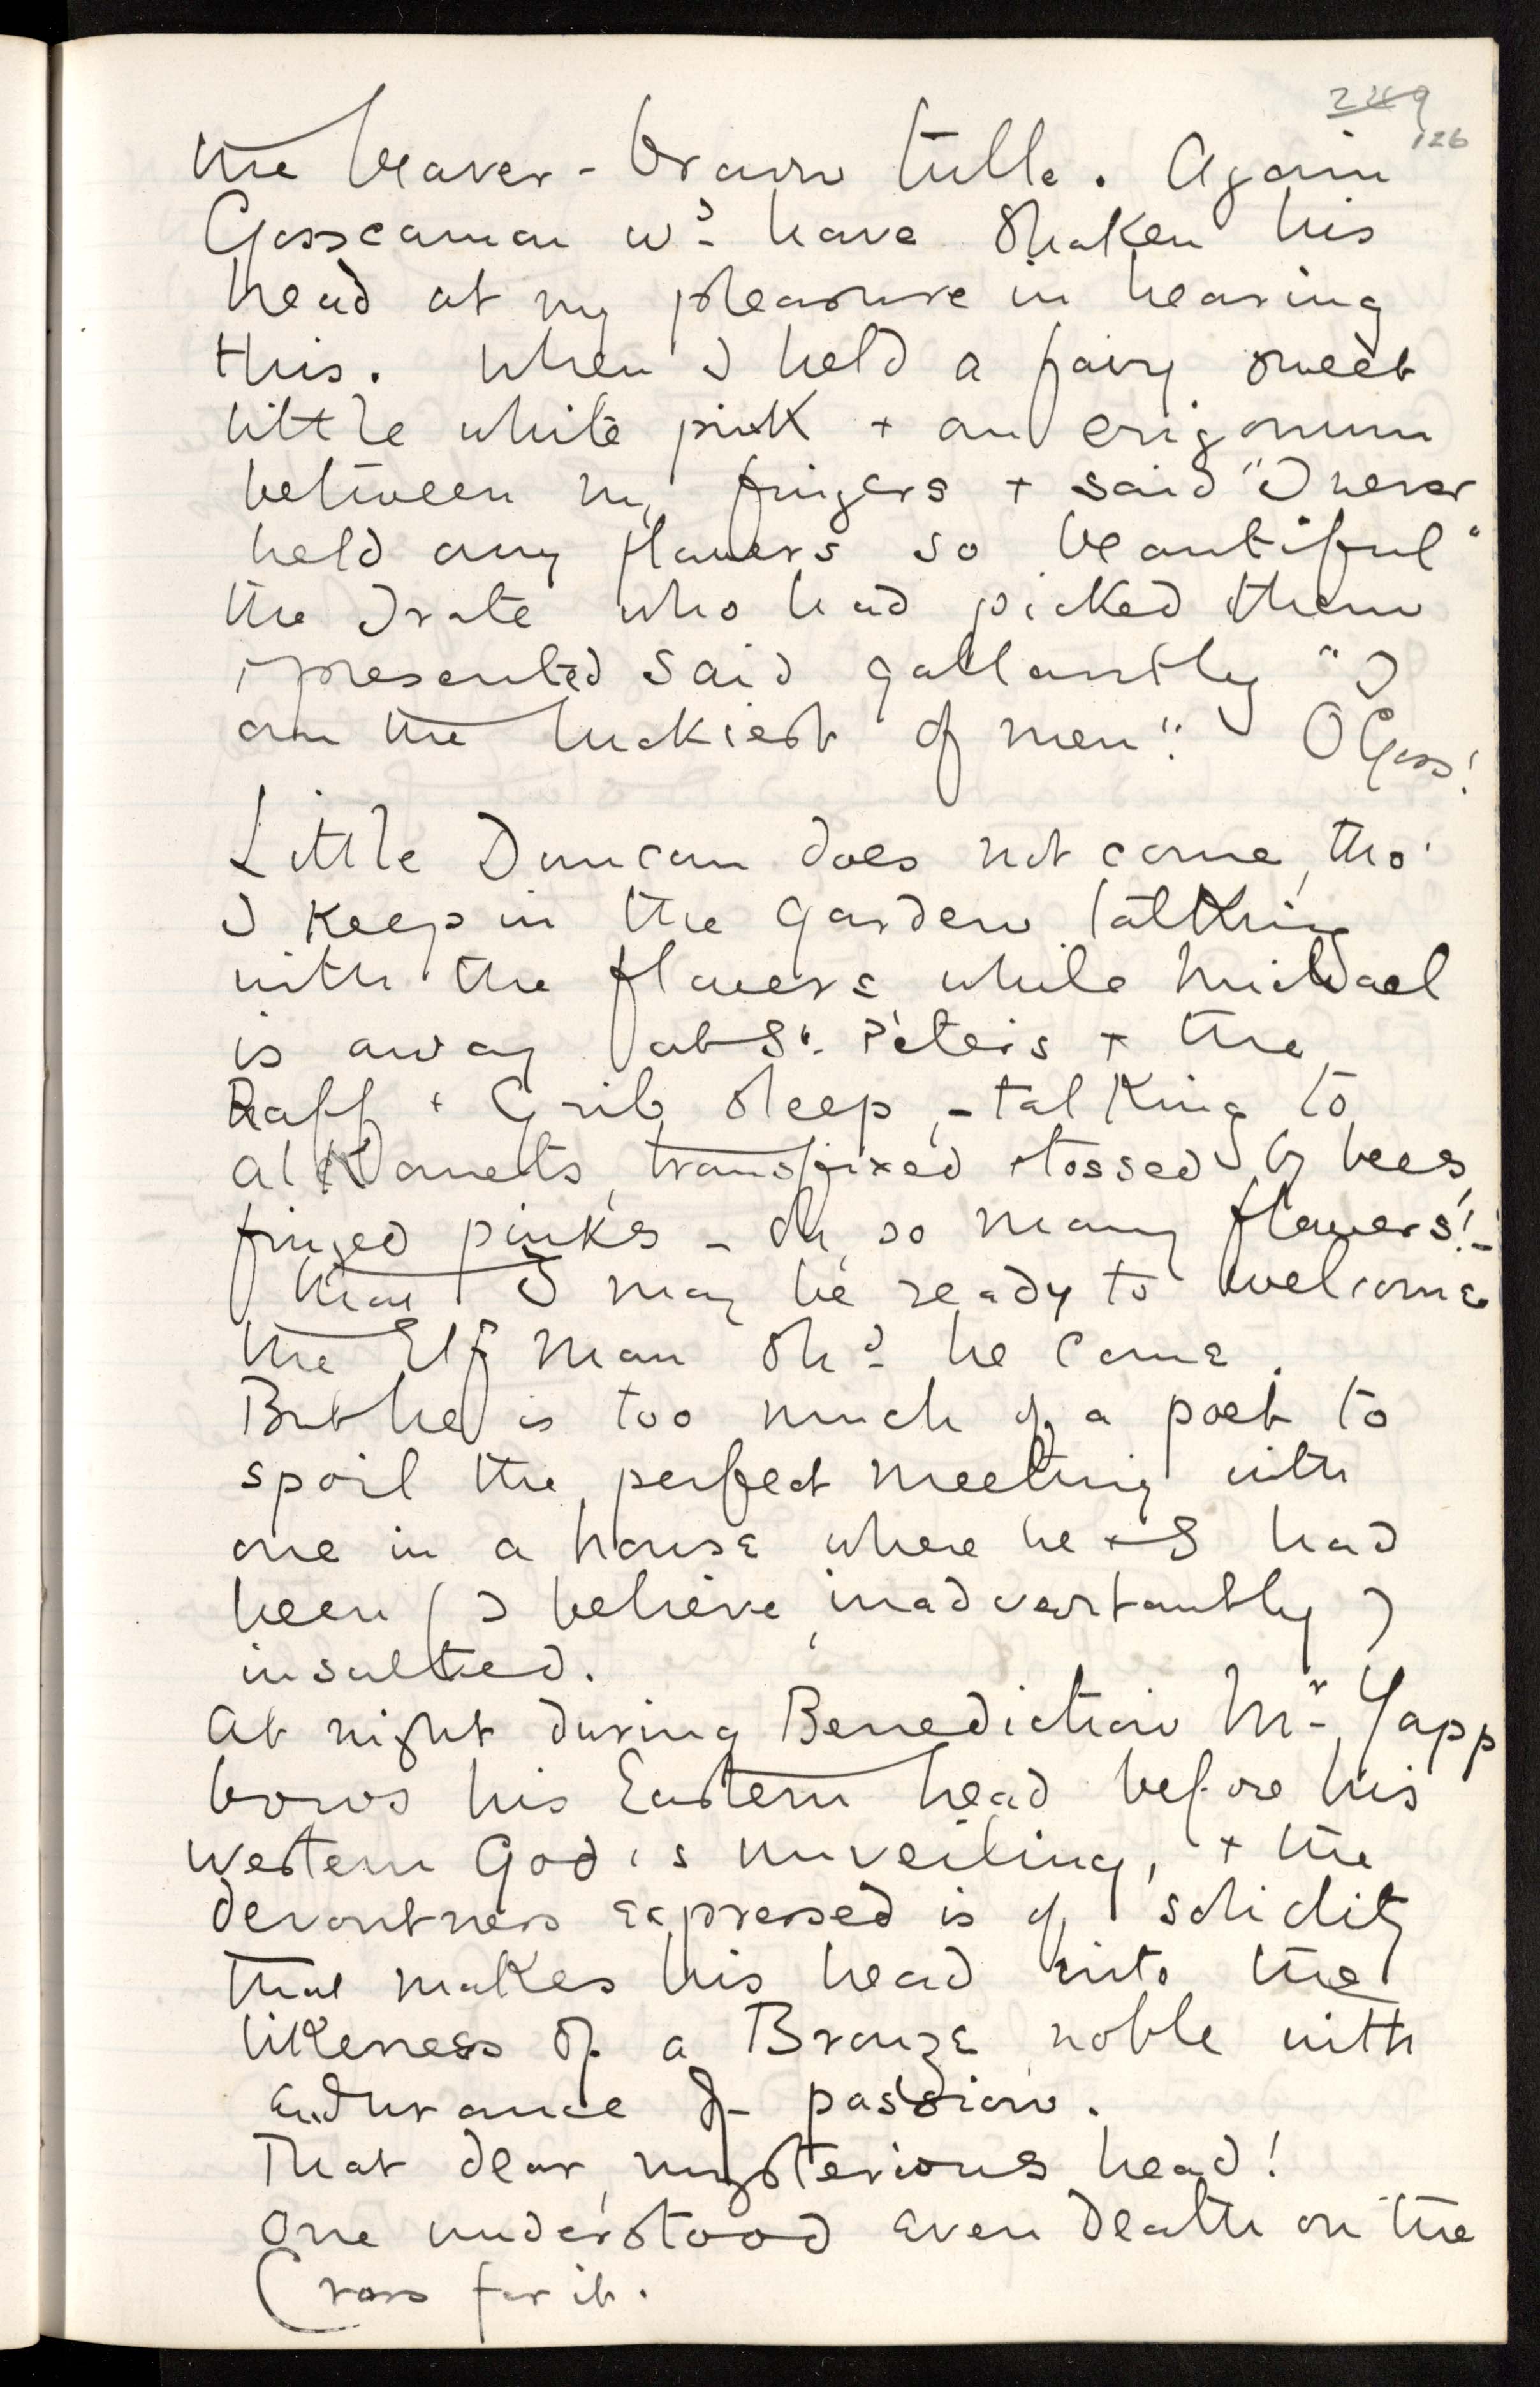 249
126
the beaver-brown tulle. Again
Gosscannon wd have shaken his
head at my pleasure in hearing
this. When I held a fairy sweet
little white pink + an erigonum
between my fingers + said "I never
held any flowers so beautiful"
the Irate who had picked them
+ presented said gallantly "I
am the luckiest of men". O Goss!
Little Duncan does not come, tho'
I keep in the garden talking
with the flowers while Michael
is away at St. Peter's + the
Raff + Grib sleep, - talking to
alkanets, transfixed + tossed by bees,
fringed pinks - oh, so many flowers! -
that I may be ready to welcome
the Elf man shd he come.
But he is too much of a poet to
spoil the perfect meeting with
one in a house where he + I had
been (I believe, inadvertantly)
insulted.
At night during Benediction Mr Yapp
bows his Eastern head before his
Western God's unveiling, + the
devoutness expressed is of solidity
that makes his head into the
likeness of a Bronze noble with
endurance of passion.
That dear, mysterious head!
One understood even Death on the
Cross for it.